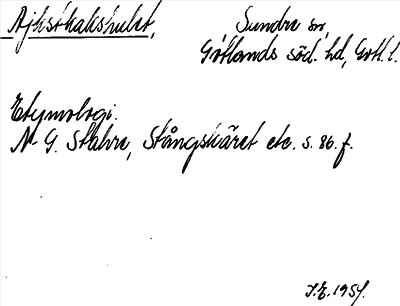 Ajkstakshulet, Sundre sn,
Gotlands söd. hd, Gotl. l.
Etymologi.
N- G. Stahre, Stångskäret etc. s. 86. f.
I.E. 1954.